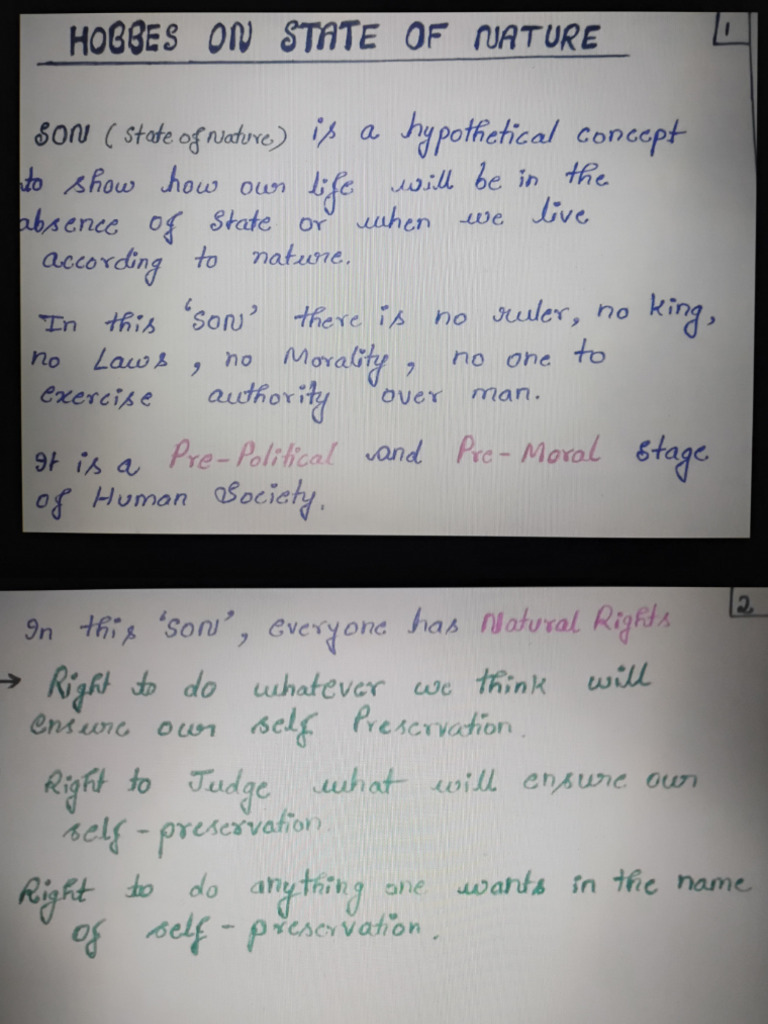 HOBBES ON STATE OF NATURE
1
SON (State of Nature) is a hypothetical concept
to show how our life will be in the
absence of State or when we live
according to nature.
In this 'SON' there is no ruler, no king,
no Laws, no Morality, no one to
exercise authority over man.
It is a Pre-Political and Pre-Moral stage
of Human Society.
2
In this 'SON', everyone has Natural Rights
→ Right to do whatever we think will
ensure our self Preservation.
Right to Judge what will ensure our
self-preservation
Right to do anything one wants in the name
of self-preservation.